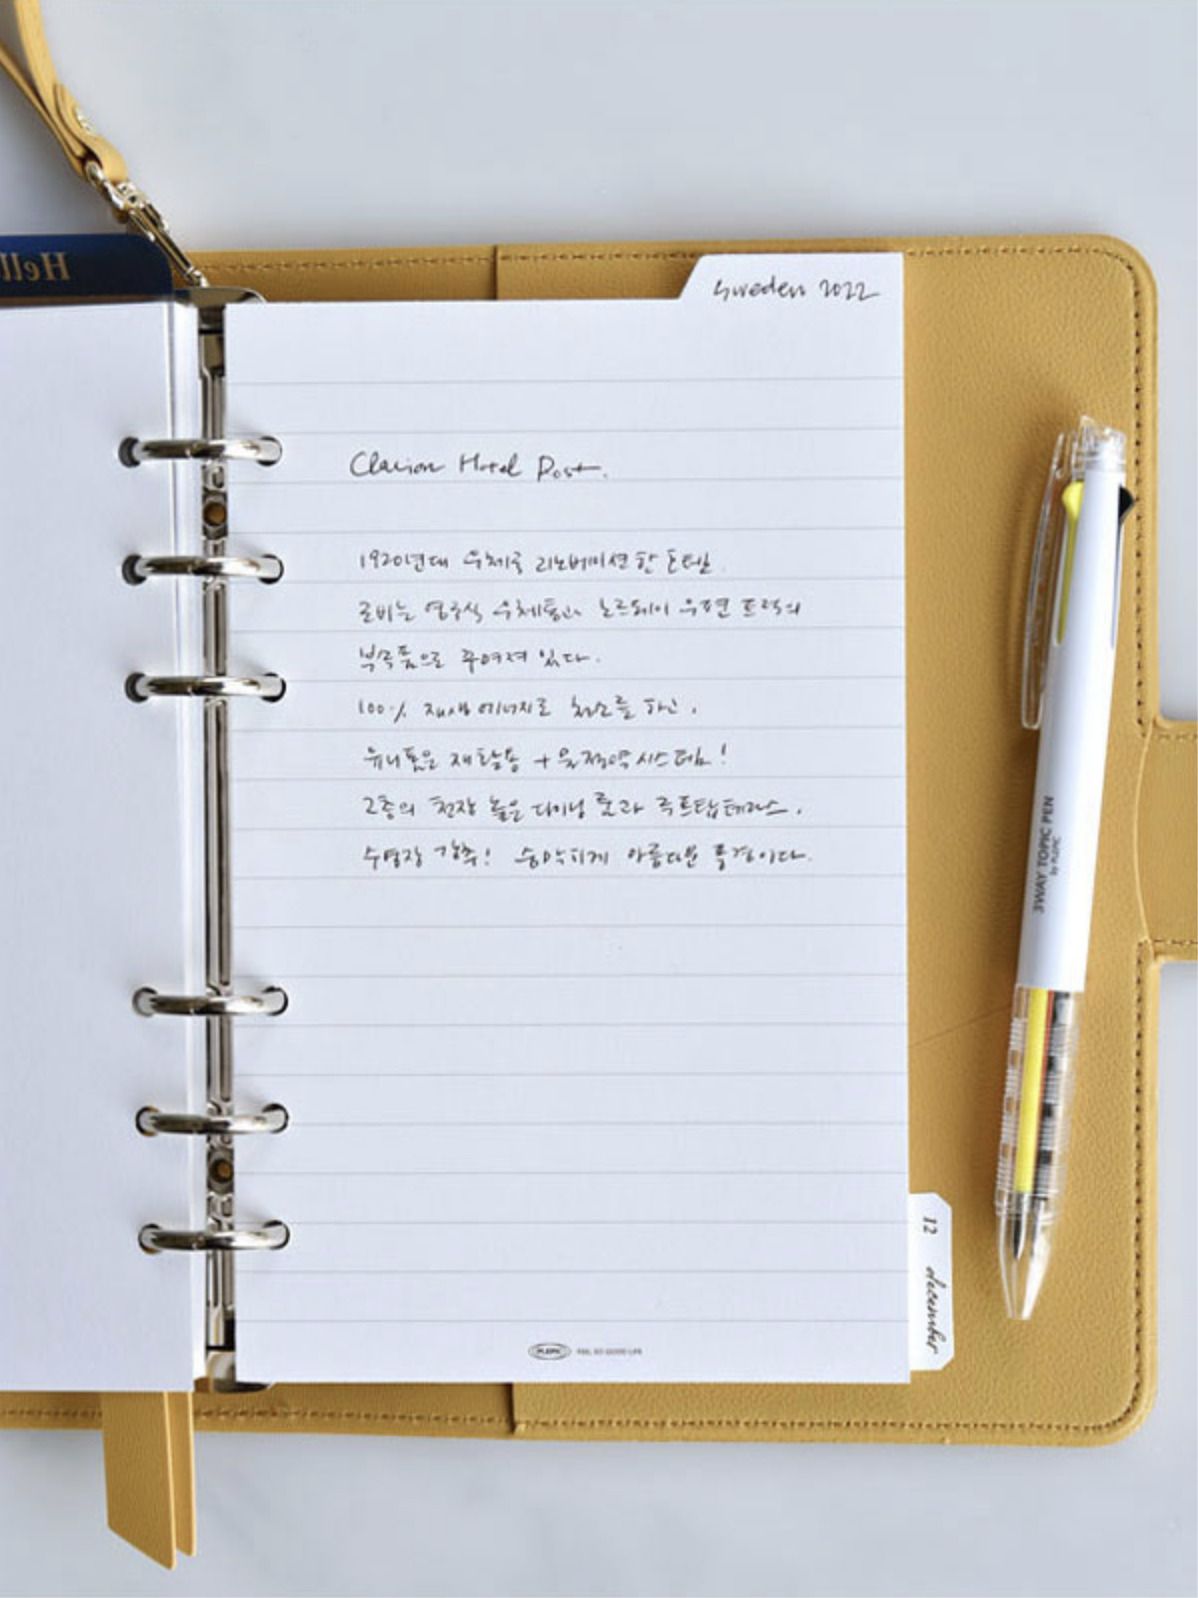 Hell
Sweden 2022
Clarion Hotel Post.
1920년대 우체국 리노베이션한 호텔.
로비는 영국식 우체통과 노르웨이 우편 트럭의
부속품으로 꾸며져 있다.
100% 재생에너지로 청소를 하고,
유니폼은 재활용 + 물절약시스템!
2층의 천장 높은 다이닝 룸과 루프탑테라스.
수영장 강추! 숨막히게 아름다운 풍경이다.
3WAY TOPIC PEN
by PLEPIC
12 december
PLEPIC FEEL SO GOOD LIFE